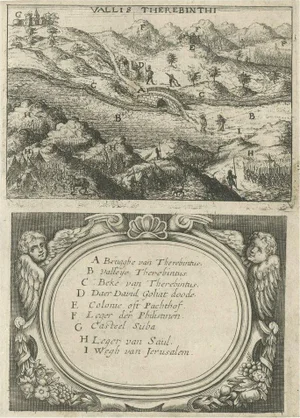 VALLIS THEREBINTHI
A Brugghe van Therebintus.
B Valleye Therebintus
C Beke van Therebintus.
D Daer David Goliat doode
E Colonie oft Pachthof
F Leger der Philistinen
G Casteel Suba
H Leger van Saul.
I Wegh van Jerusalem.